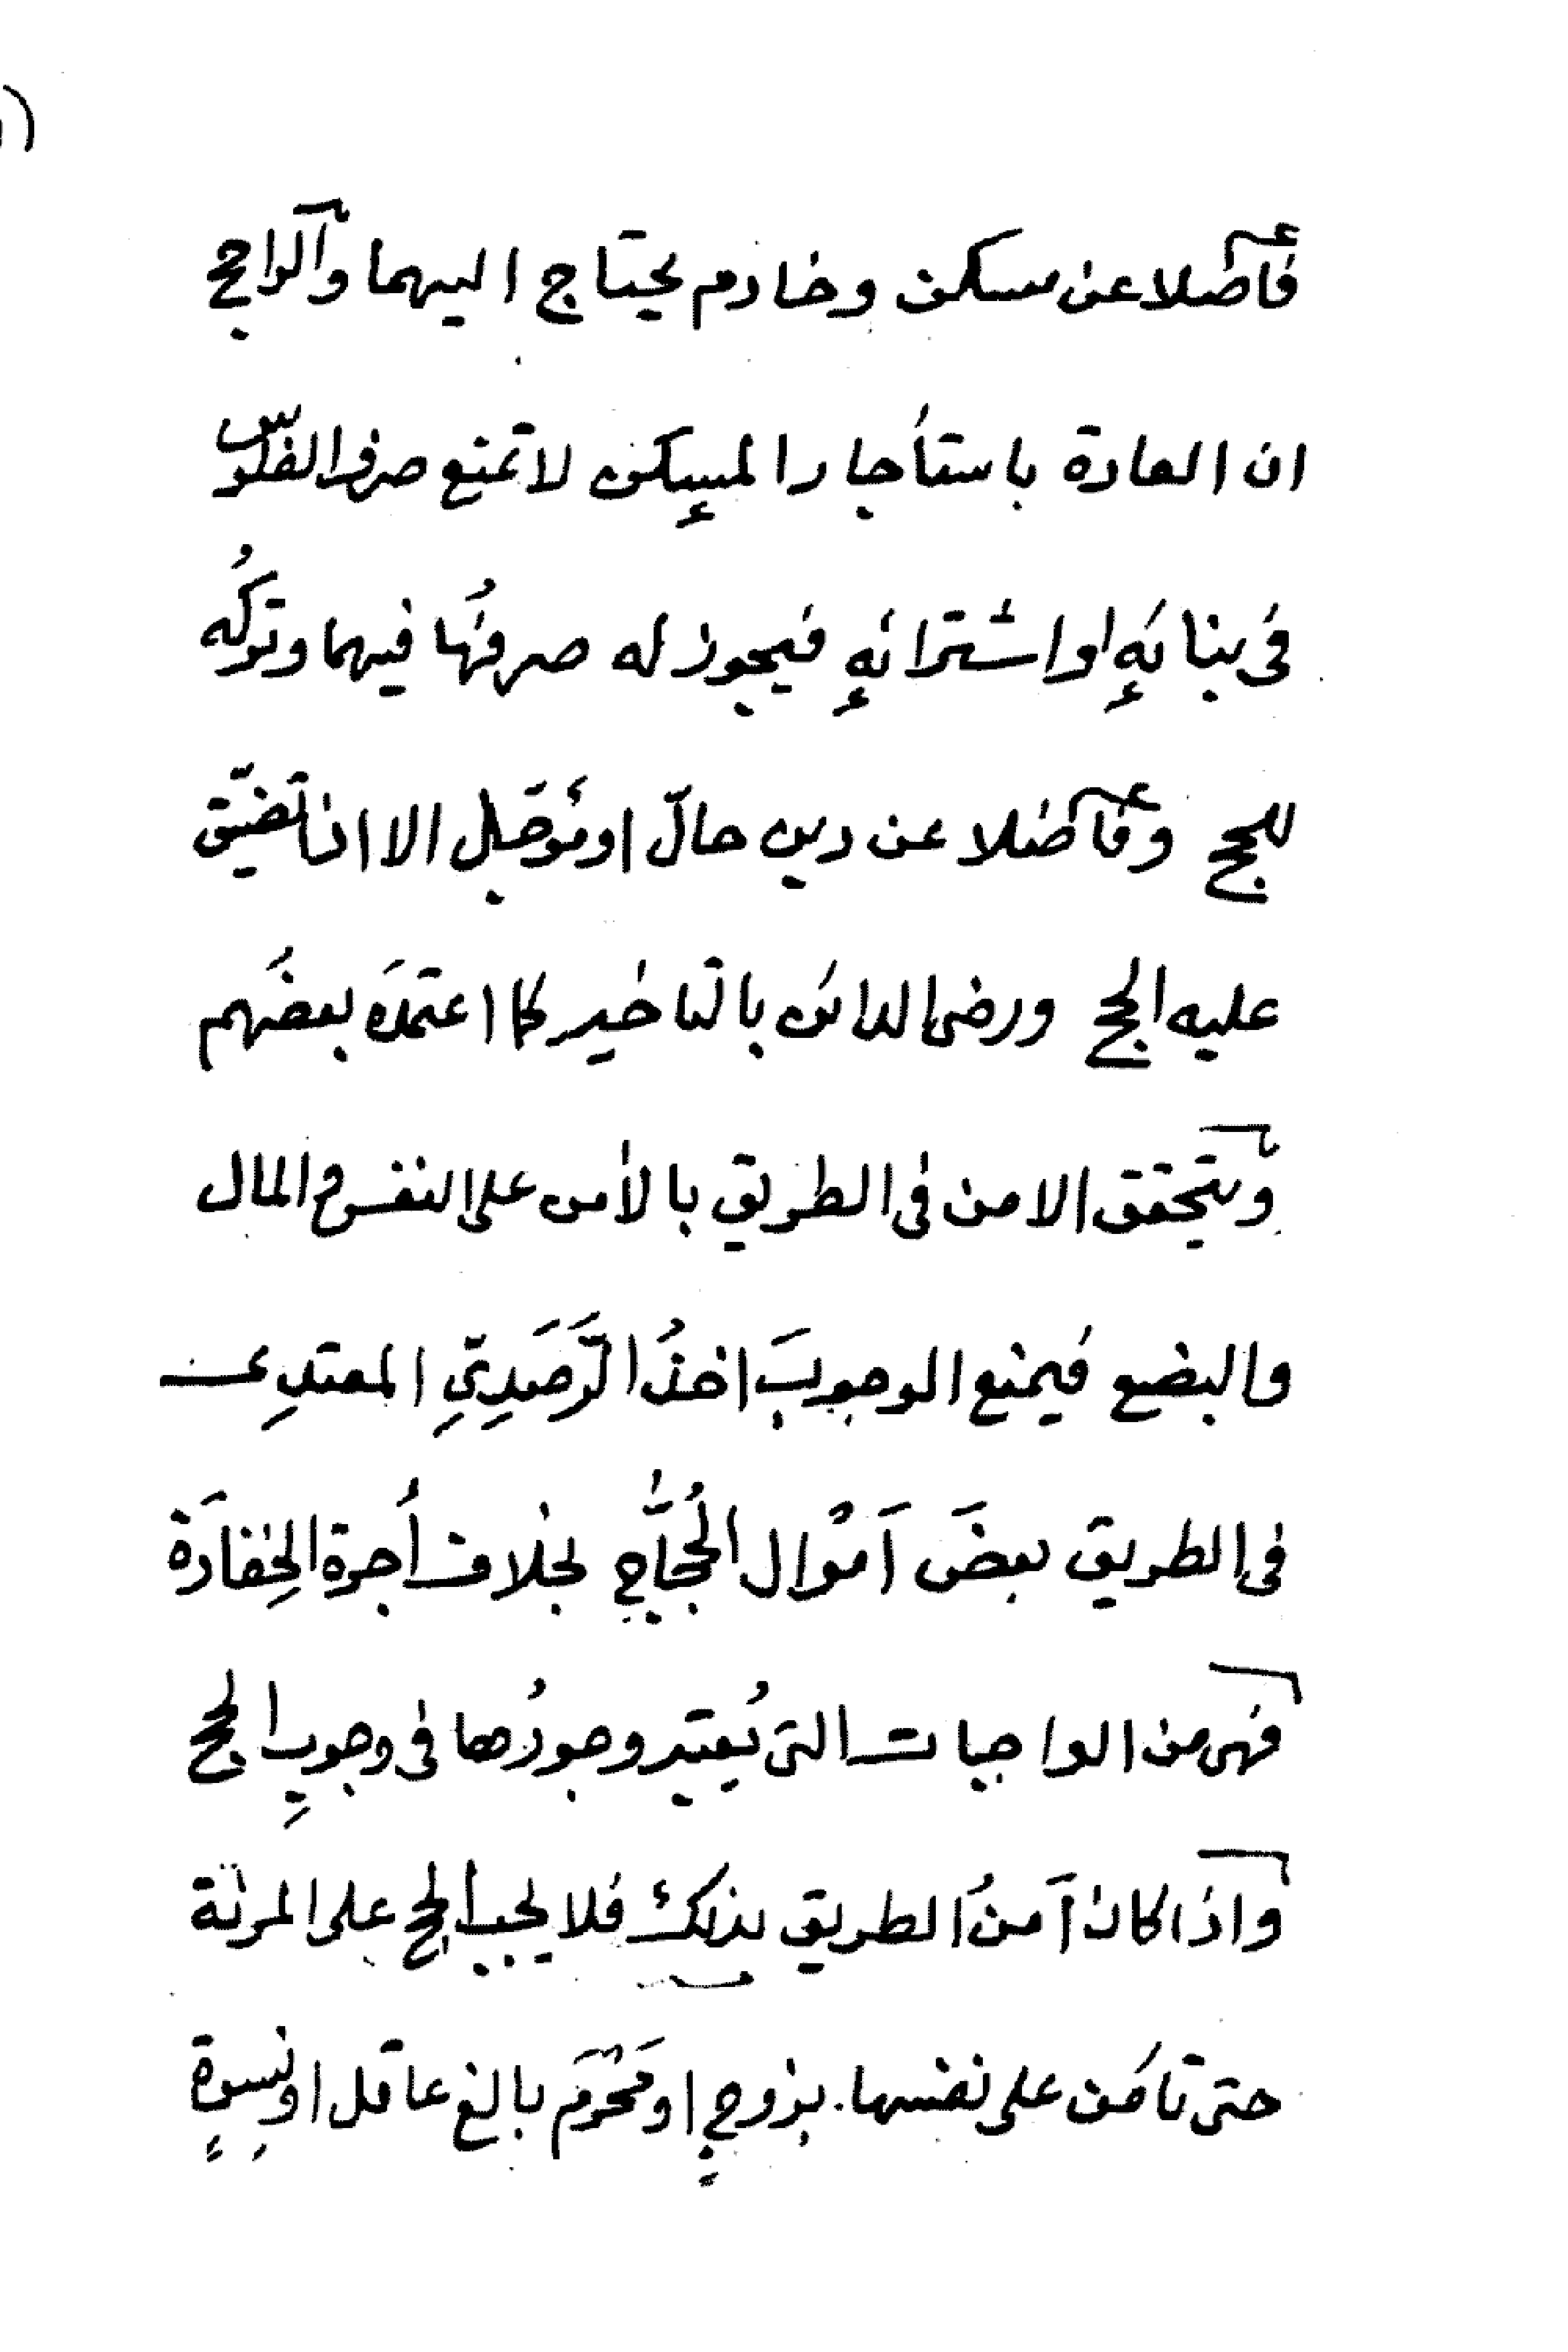 فأضلا عن سكن وخادم يحتاج اليهما والراجح
ان العادة باستأجار المسكن لا تمنع صرف الفلوس
فى بنائه او اشترائه فيجوز له صرفُها فيهما وتركُه
للحج وفأضلا عن دين حالّ او مؤجل الا اذا تضيّق
عليه الحج ورضى الدائن بالتاخير كما اعتمدَه بعضُهم
ويتحقق الامن فى الطريق بالأمن على النفس والمال
والبضع فيمنع الوجوبَ اخذُ الرَّصَدِيِّ المعتدِى
فى الطريق بعضَ اَمْوال الحُجَّاجِ بخلاف أجرة الخِفارَة
فهى من الواجبات التى يُعتبر وجودُها فى وجوبِ الحج
واذا كان اَمنُ الطريق بذلك فلا يجب الحج على المرئة
حتى تامَن على نفسها بزوجٍ او مَحْرَم بالغ عاقل او نِسوةٍ